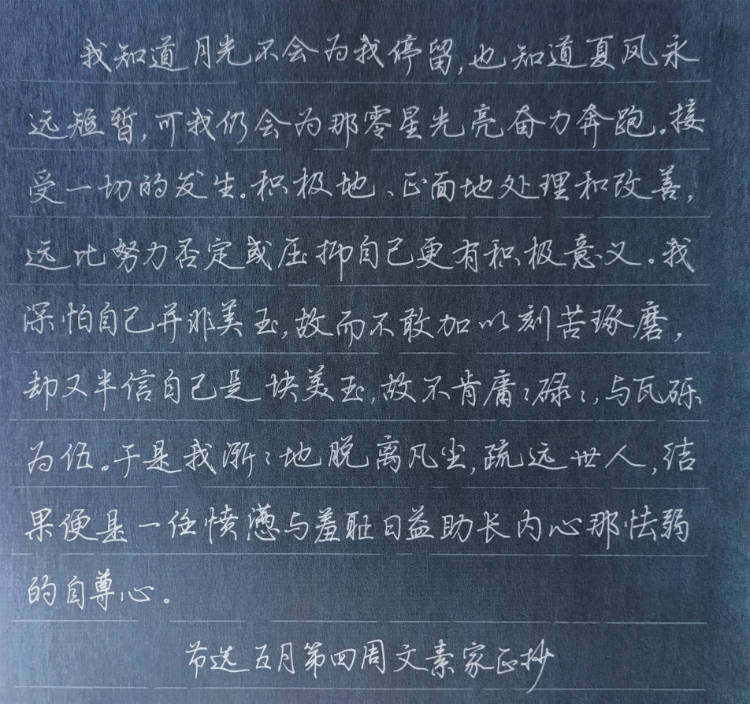 我知道月光不会为我停留,也知道夏风永
远短暂,可我仍会为那零星光亮奋力奔跑。接
受一切的发生。积极地、正面地处理和改善,
远比努力否定或压抑自己更有积极意义。我
深怕自己并非美玉,故而不敢加以刻苦琢磨,
却又半信自己是块美玉,故不肯庸:碌:,与瓦砾
为伍。于是我渐:地脱离凡尘,疏远世人,结
果便是一任愤懑与羞耻日益助长内心那怯弱
的自尊心。
节选五月第四周文素家正抄